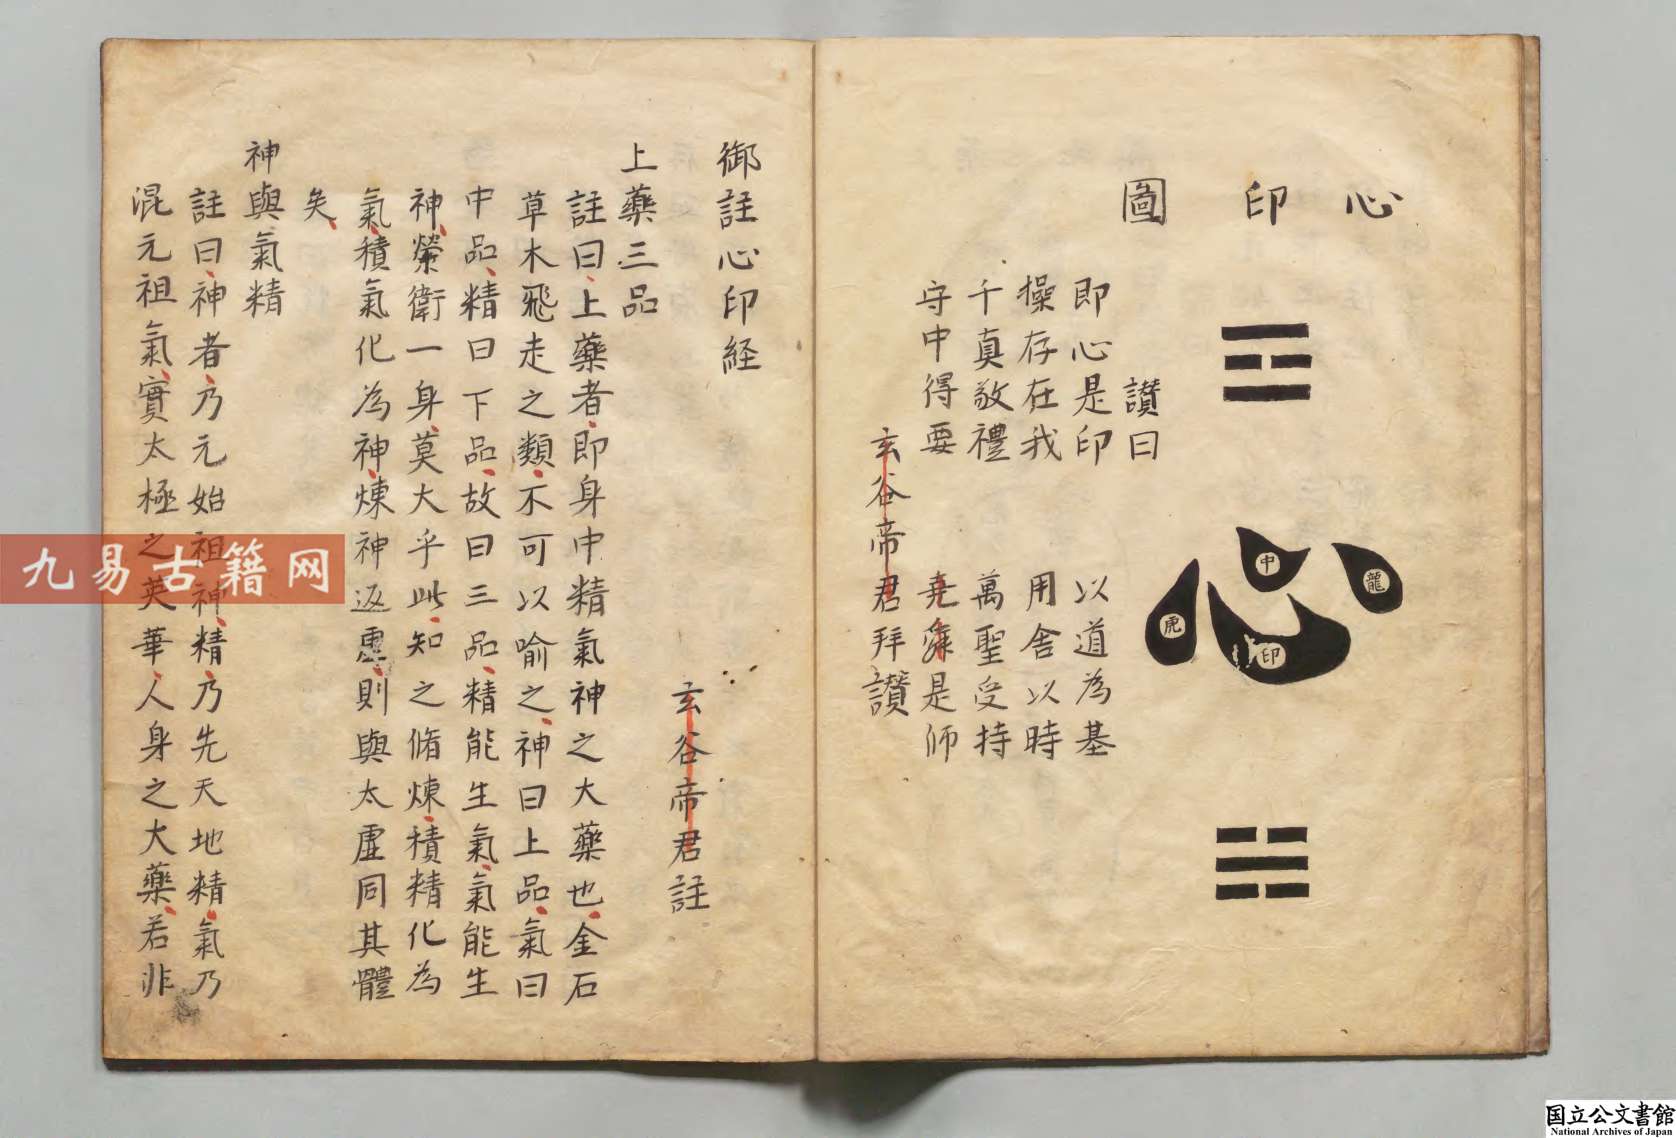 心印圖
中
龍
虎
印
讃曰
即心是印 以道為基
操存在我 用舎以時
千真敬禮 萬聖受持
守中得要 堯舜是師
玄谷帝君拜讃
御註心印経
玄谷帝君註
上藥三品
註曰上藥者即身中精氣神之大藥也金石
草木飛走之類不可以喻之神曰上品氣曰
中品精曰下品故曰三品精能生氣氣能生
神榮衛一身莫大乎此知之脩煉積精化為
氣積氣化為神煉神返虛則與太虛同其體
矣
神與氣精
註曰神者乃元始祖神精乃先天地精氣乃
混元祖氣實太極之英華人身之大藥若非
九易古籍网
国立公文書館
National Archives of Japan